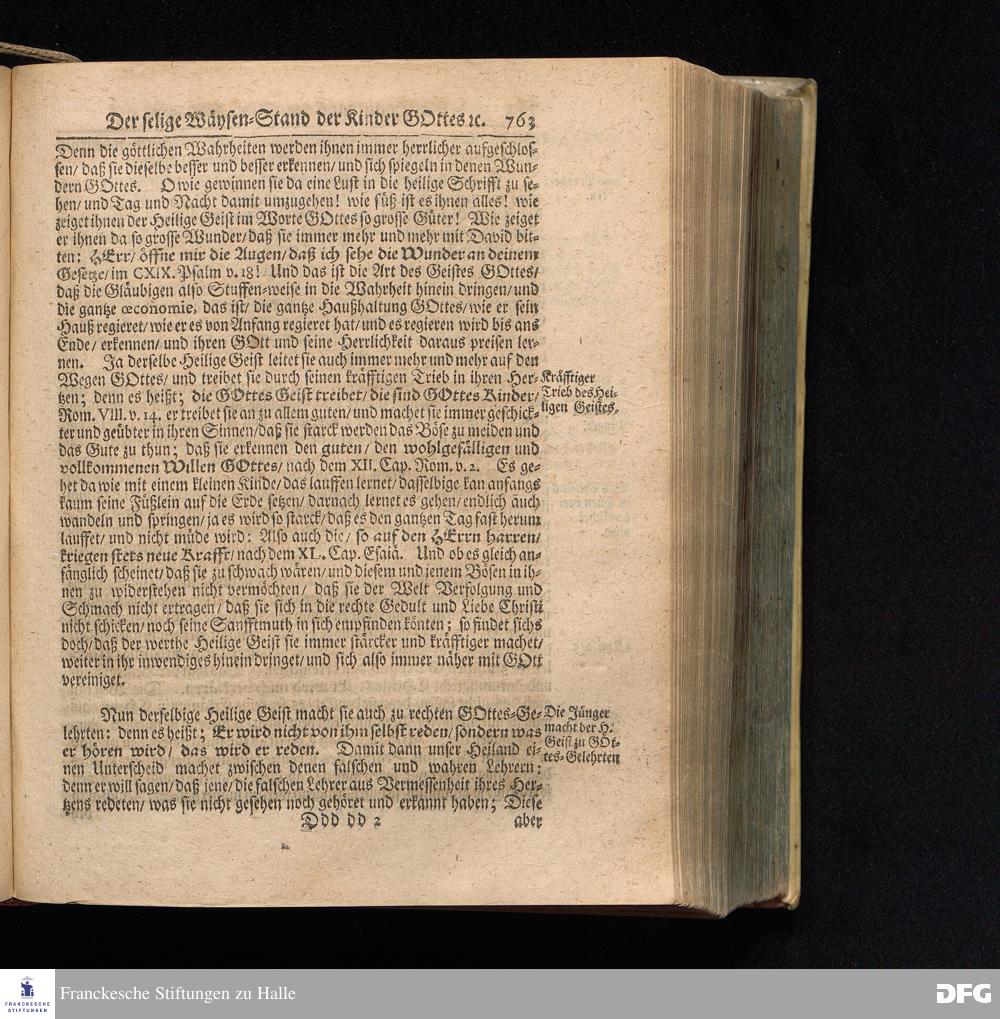 Der selige Wäysen-Stand der Kinder GOttes ꝛc. 763
Denn die göttlichen Wahrheiten werden ihnen immer herrlicher aufgeschlos-
sen/ daß sie dieselbe besser und besser erkennen/ und sich spiegeln in denen Wun-
dern GOttes. O wie gewinnen sie da eine Lust in die heilige Schrifft zu se-
hen/ und Tag und Nacht damit umzugehen! wie süß ist es ihnen alles! wie
zeiget ihnen der Heilige Geist im Worte GOttes so grosse Güter! Wie zeiget
er ihnen da so grosse Wunder/ daß sie immer mehr und mehr mit David bit-
ten: HErr/ öffne mir die Augen/ daß ich sehe die Wunder an deinem
Gesetze/ im CXIX. Psalm v. 18! Und das ist die Art des Geistes GOttes/
daß die Gläubigen also Stuffen-weise in die Wahrheit hinein dringen/ und
die gantze œconomie, das ist/ die gantze Haußhaltung GOttes/ wie er sein
Hauß regieret/ wie er es von Anfang regieret hat/ und es regieren wird bis ans
Ende/ erkennen/ und ihren GOtt und seine Herrlichkeit daraus preisen ler-
nen. Ja derselbe Heilige Geist leitet sie auch immer mehr und mehr auf den
Wegen GOttes/ und treibet sie durch seinen kräfftigen Trieb in ihren Her-
tzen; denn es heißt; die GOttes Geist treibet/ die sind GOttes Kinder/
Rom. VIII. v. 14. er treibet sie an zu allem guten/ und machet sie immer geschick-
ter und geübter in ihren Sinnen/ daß sie starck werden das Böse zu meiden und
das Gute zu thun; daß sie erkennen den guten/ den wohlgefälligen und
vollkommenen Willen GOttes/ nach dem XII. Cap. Rom. v. 2. Es ge-
het da wie mit einem kleinen Kinde/ das lauffen lernet/ dasselbige kan anfangs
kaum seine Füßlein auf die Erde setzen/ darnach lernet es gehen/ endlich auch
wandeln und springen/ ja es wird so starck/ daß es den gantzen Tag fast herum
lauffet/ und nicht müde wird: Also auch die/ so auf den HErrn harren/
kriegen stets neue Krafft/ nach dem XL. Cap. Esaiä. Und ob es gleich an-
fänglich scheinet/ daß sie zu schwach wären/ und diesem und jenem Bösen in ih-
nen zu widerstehen nicht vermöchten/ daß sie der Welt Verfolgung und
Schmach nicht ertragen/ daß sie sich in die rechte Gedult und Liebe Christi
nicht schicken/ noch seine Sanfftmuth in sich empfinden könten; so findet sichs
doch/ daß der werthe Heilige Geist sie immer stärcker und kräfftiger machet/
weiter in ihr inwendiges hinein dringet/ und sich also immer näher mit GOtt
vereiniget.
Kräfftiger
Trieb des Hei-
ligen Geistes.
Nun derselbige Heilige Geist macht sie auch zu rechten GOttes-Ge-
lehrten: denn es heißt; Er wird nicht von ihm selbst reden/ sondern was
er hören wird/ das wird er reden. Damit dann unser Heiland ei-
nen Unterscheid machet zwischen denen falschen und wahren Lehrern;
denn er will sagen/ daß jene/ die falschen Lehrer aus Vermessenheit ihres Her-
tzens redeten/ was sie nicht gesehen noch gehöret und erkannt haben; Diese
Die Jünger
macht der H.
Geist zu GOt-
tes-Gelehrten
Ddd dd 2
aber
FRANCKESCHE
STIFTUNGEN
Franckesche Stiftungen zu Halle
DFG